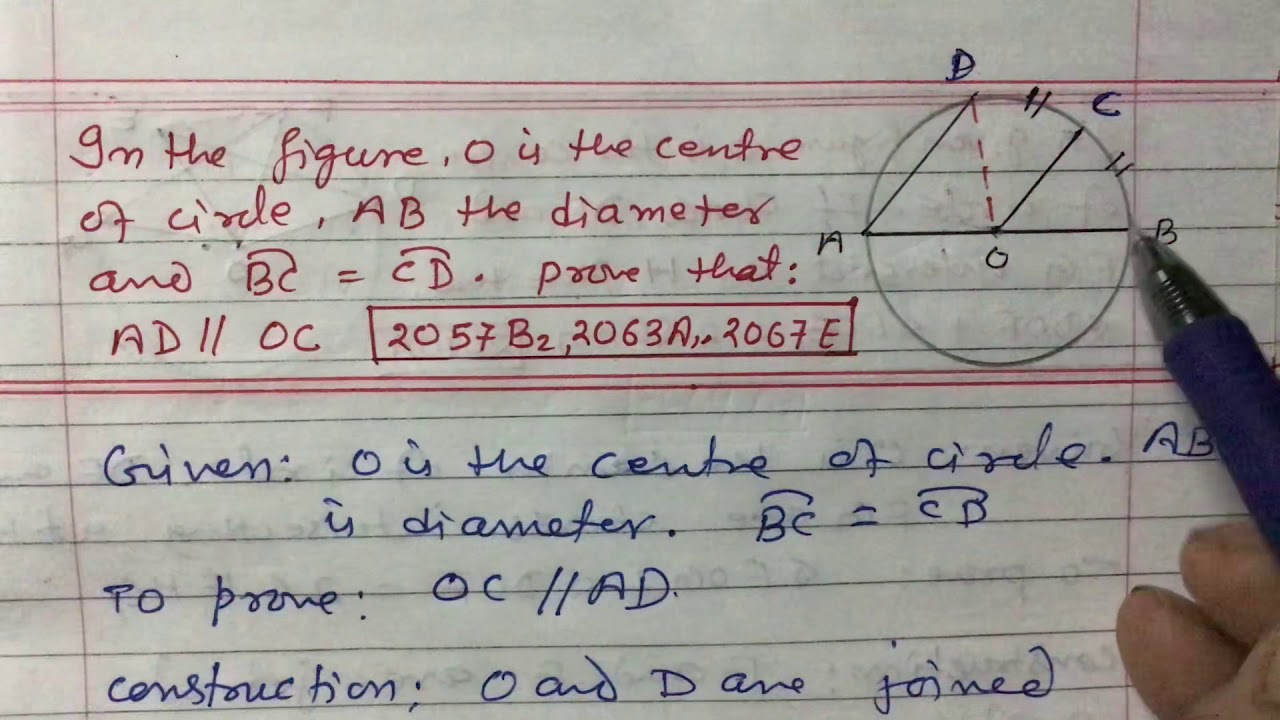 In the figure, O is the centre
of circle, AB the diameter
and BC = CD. prove that:
AD // OC 2057 B2, 2063A,, 2067 E
D
C
A
O
B
Given: O is the centre of circle. AB
is diameter. BC = CD
To prove: OC // AD.
construction: O and D are joined